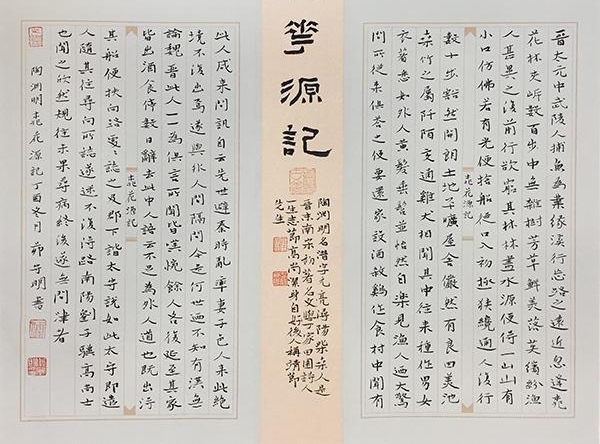 晉太元中武陵人捕魚為業緣溪行忘路之遠近忽逢桃
花林夾岸數百步中無雜樹芳草鮮美落英繽紛漁
人甚異之復前行欲窮其林林盡水源便得一山山有
小口仿佛若有光便捨船從口入初極狹纔通人復行
桃花源記
數十步豁然開朗土地平曠屋舍儼然有良田美池
桑竹之屬阡陌交通雞犬相聞其中往來種作男女
衣著悉如外人黃髮垂髫並怡然自樂見漁人乃大驚
問所從來俱答之便要還家設酒殺雞作食村中聞有
華源記
陶淵明名潛字元亮潯陽柴桑人是
晉末南宋初著名文學家田園詩人
一生志節高尚潔身自好後人稱靖節
先生
此人咸來問訊自云先世避秦時亂率妻子邑人來此絕
境不復出焉遂與外人間隔問今是何世乃不知有漢無
論魏晉此人一一為俱言所聞皆嘆惋餘人各復延至其家
皆出酒食停數日辭去此中人語云不足為外人道也既出得
桃花源記
其船便扶向路處處誌之及郡下詣太守說如此太守即遣
人隨其往尋向所誌遂迷不復得路南陽劉子驥高尚士
也聞之欣然規往未果尋病終後遂無問津者
陶淵明桃花源記丁酉冬月